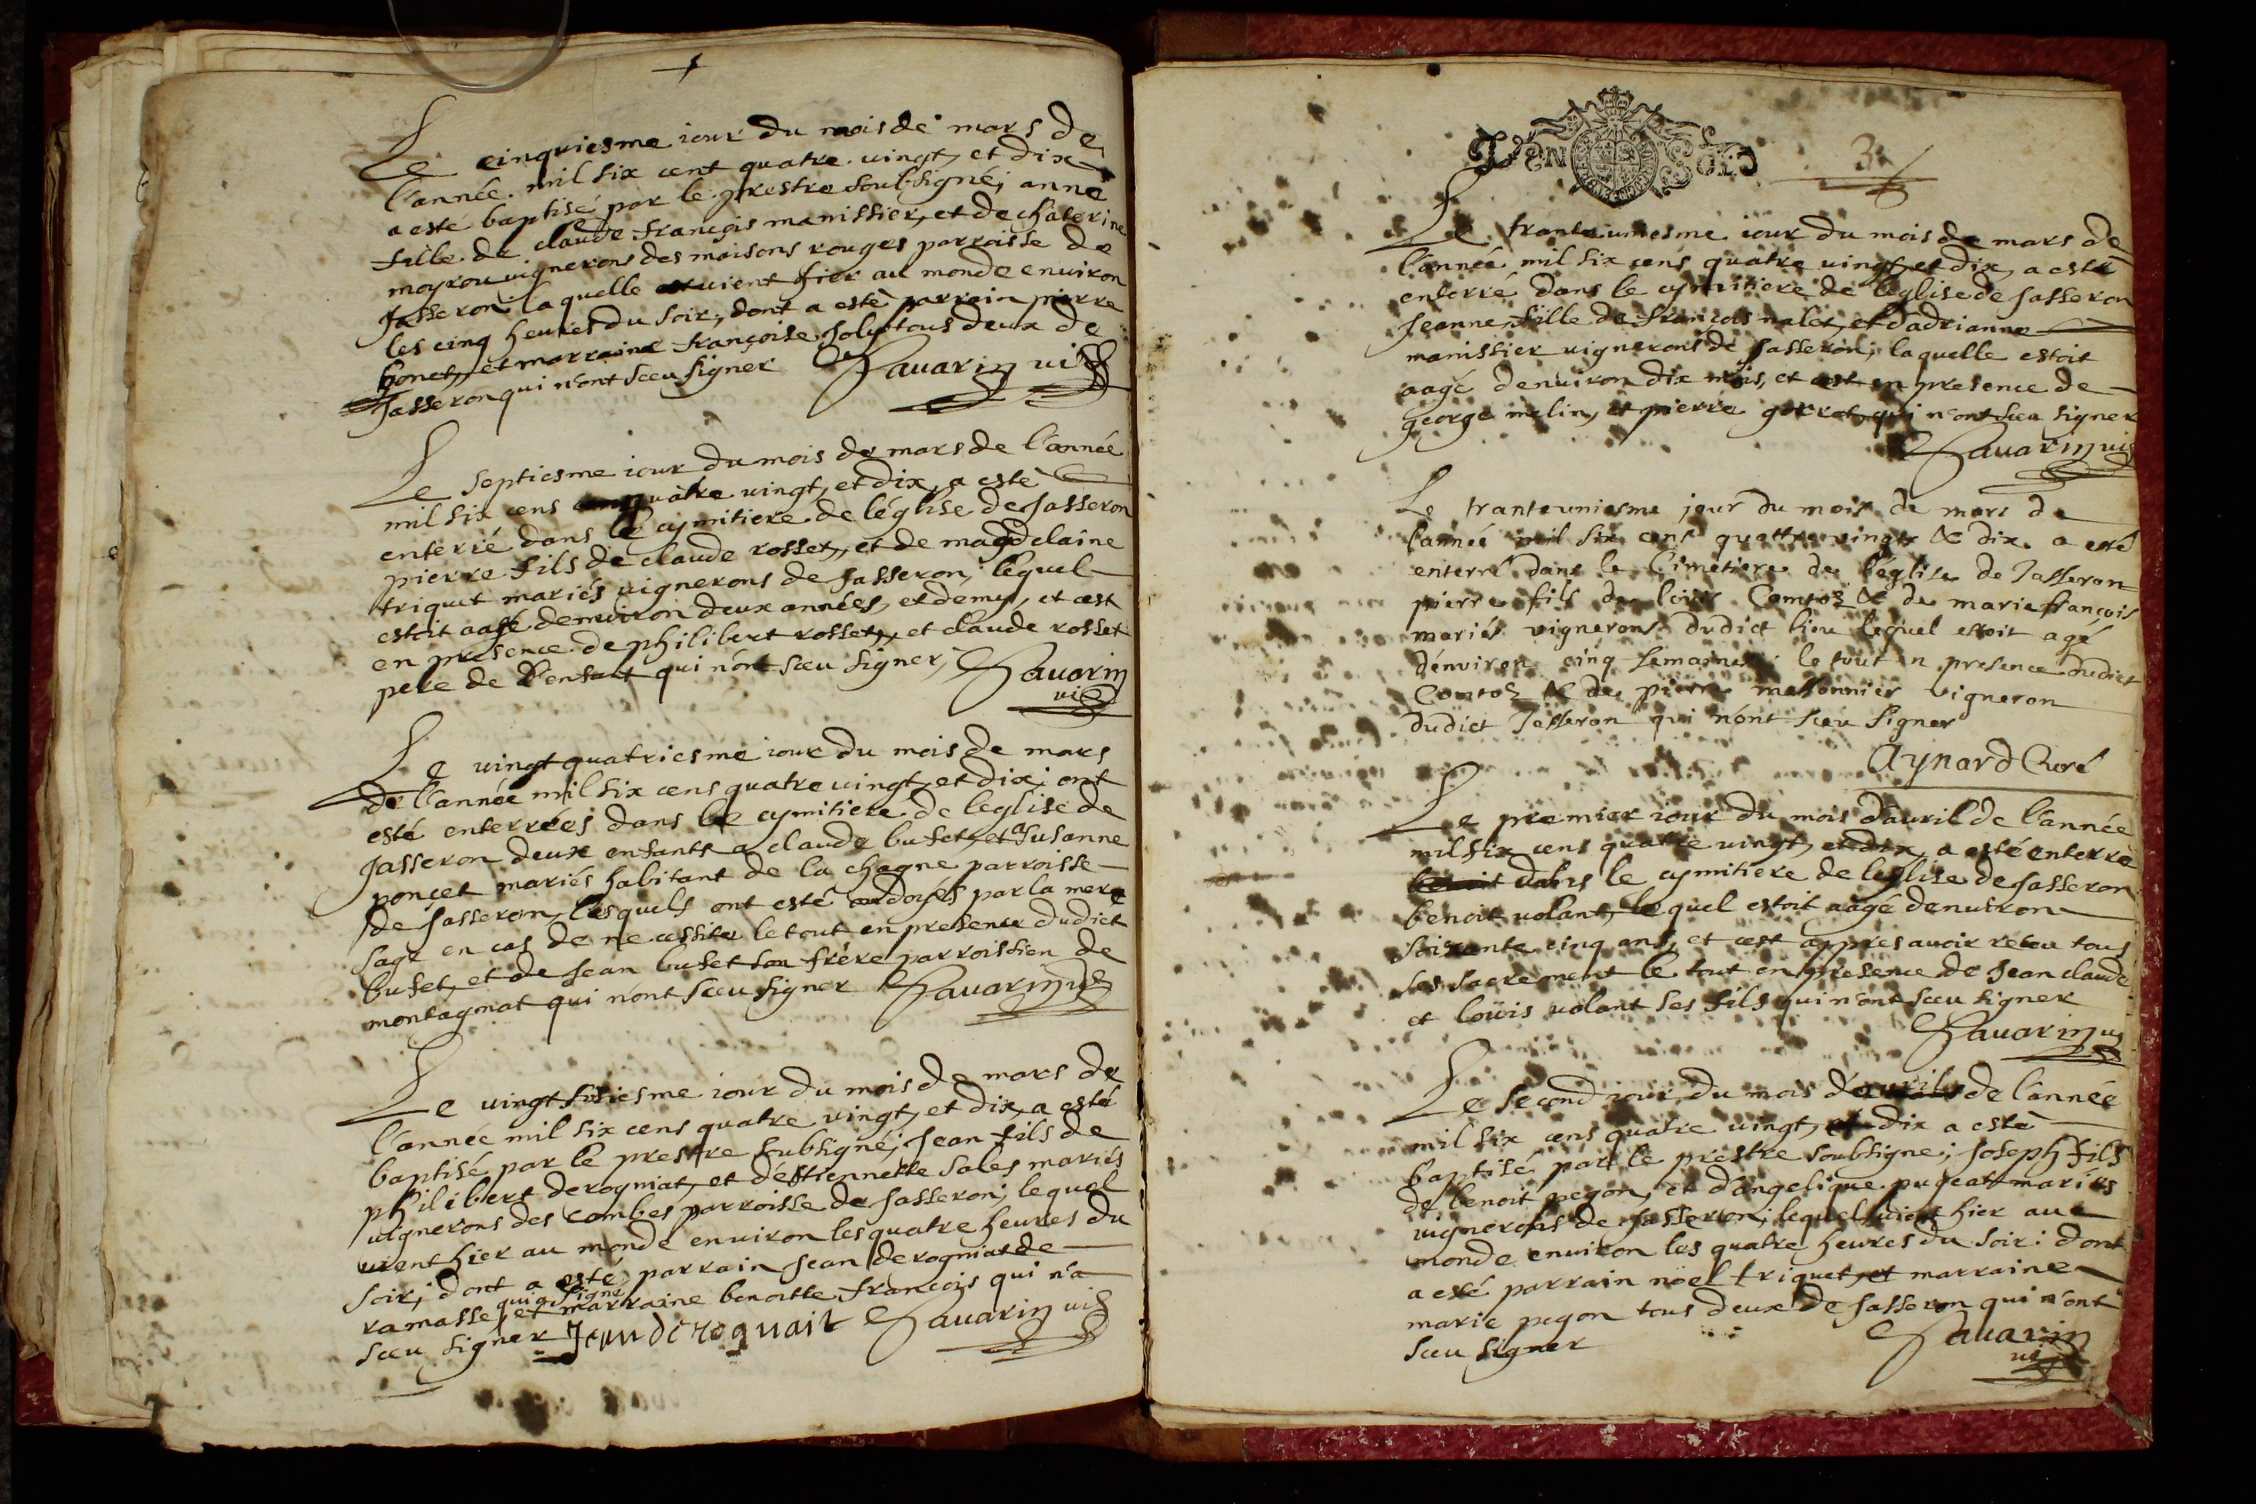 Le cinquiesme iour du mois de mars de
l'année mil six cent quatre vingt, et dix
a esté baptisé par le prestre soubsigné; anne
fille de claude françois manissier, et de chaterine
moyrou vignerons des maisons rouges parroisse de
Jasseron laquelle vient hier au monde enuiron
les cinq heures du soir, dont a esté parrain pierre
bonet, et marraine françoise Joly tous deux de
Jasseron qui n'ont sceu signer Sauarin vic
Le septiesme iour du mois de mars de l'année
mil six cens quatre vingt, et dix, a esté
enterré dans le cymitiere de l'église de Jasseron
pierre fils de claude rosset, et de magdelaine
triquet mariés vignerons de Jasseron, lequel
estoit aagé denuiron deux années, et demy, et cest
en presence de philibert rosset, et claude rosset
pere de l'enfant qui n'ont sceu signer, Sauarin
vic
Le vingt quatriesme iour du mois de mars
de l'année mil six cens quatre vingt, et dix; ont
esté enterrées dans le cymitiere de leglise de
Jasseron deux enfants a claude bufet, et Susanne
ponçet mariés habitant de la chagne parroisse
de Jasseron, lesquels ont esté ondoyés par la mere
sage en cas de necessite le tout en presence dudict
bufet, et de Jean bufet son frére parroissien de
montagnat qui n'ont sceu signer Sauarin vic
Le vingt sisiesme iour du mois de mars de
l'année mil six cens quatre vingt, et dix, a esté
baptisé par le prestre soubsigné; Jean fils de
philibert derogniat, et d'éstiennette Sales mariés
vignerons des combes parroisse de Jasseron; lequel
vient hier au monde enuiron les quatre heures du
soir; dont a esté parrain Jean derogniat de
ramasse qui a signé et marraine benoitte françois qui n'a
sceu signer Jean derognait Sauarin vic
3
Le tranteuniesme iour du mois de mars de
l'année mil six cens quatre vingt, et dix, a esté
enterré dans le cymitiere de l'eglise de Jasseron
Jeanne fille de francois nalet, et d'adrianne
manissier vignerons de Jasseron; laquelle estoit
aagé denuiron dix mois, et cest en presence de
george melin, et pierre gorret, qui n'ont sceu signer
Sauarin vic
Le tranteuniesme jour du mois de mars de
l'année mil six cens quattre vingts & dix a esté
enterré dans le Cimetiere de l'église de Jasseron
pierre fils de loüis Comtoz & de marie françois
mariés vignerons dudict lieu lequel estoit agé
d'environ cinq semaines; le tout n presence dudict
Comtoz & de pierre massonnier vigneron
dudict Jasseron qui n'ont sceu signer
Aynard Curé
Le premier iour du mois d'auril de l'année
mil six cens quatre vingt, et dix, a esté enterré
benoit dans le cymitiere de leglise de Jasseron
benoit volant, lequel estoit aagé denuiron
soixante cinq ans, et cest appres auoir receu tous
ses sacrement le tout en presence de Jean claude
et loüis volant ses fils qui n'ont sceu signer
Sauarin vic
Le second iour du mois d'auril de l'année
mil six cens quatre vingt, et dix a esté
baptisé par le prestre soubsigne; Joseph fils
de benoit pegon, et d'angelique pugeat mariés
vignerons de Jasseron; lequel vient hier au
monde enuiron les quatre heures du soir: dont
a esté parrain noel triquet, et marraine
marie pegon tous deux de Jasseron qui n'ont
sceu signer Sauarin
vic